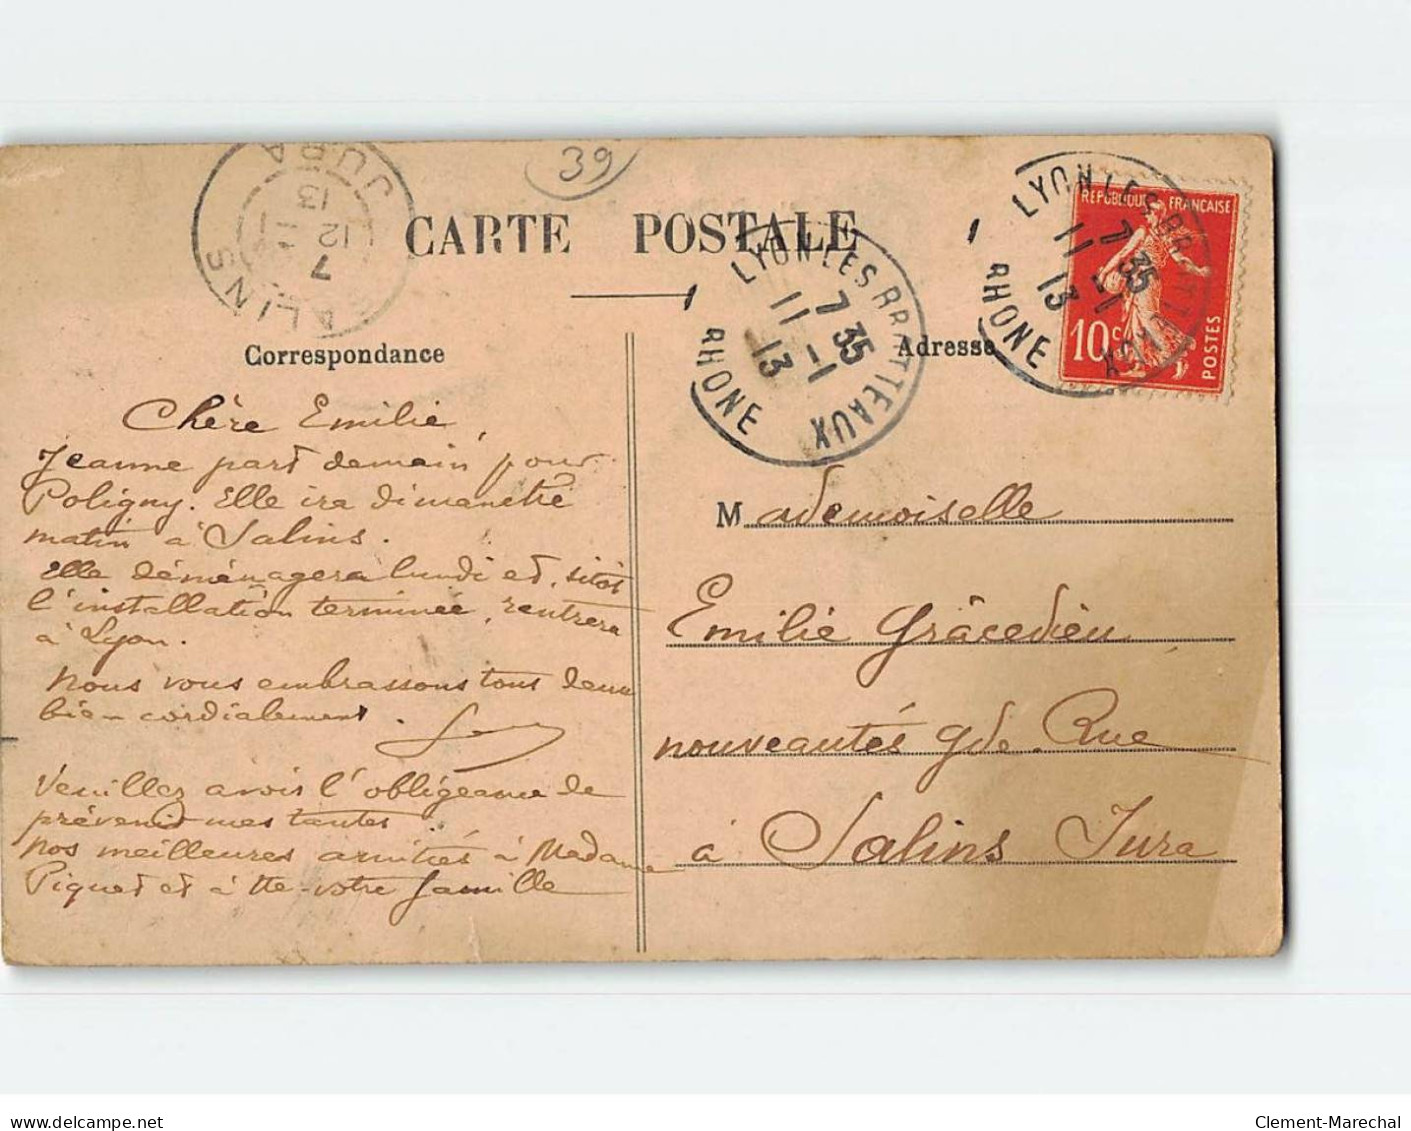 39
CARTE POSTALE
SALINS JURA
7
12 -1
13
LYON LES BROTTEAUX
7 35
11 -1
13
RHONE
LYON LES BROTTEAUX
7 35
11 -1
13
RHONE
REPUBLIQUE FRANÇAISE
10c
POSTES
Correspondance
Adresse
Chère Emilie,
Jeanne part demain pour
Poligny. Elle ira dimanche
matin à Salins.
Elle déménagera lundi et, sitôt
l'installation terminée, rentrera
à Lyon.
Nous vous embrassons tous deux
bien cordialement.
Veuillez avoir l'obligeance de
prévenir mes tantes
Nos meilleures amitiés à Madame
Piquet et à tte votre famille
Mademoiselle
Emilie Grâcedieu
nouveautés gde Rue
à Salins Jura
delcampe.net
Clement-Marechal